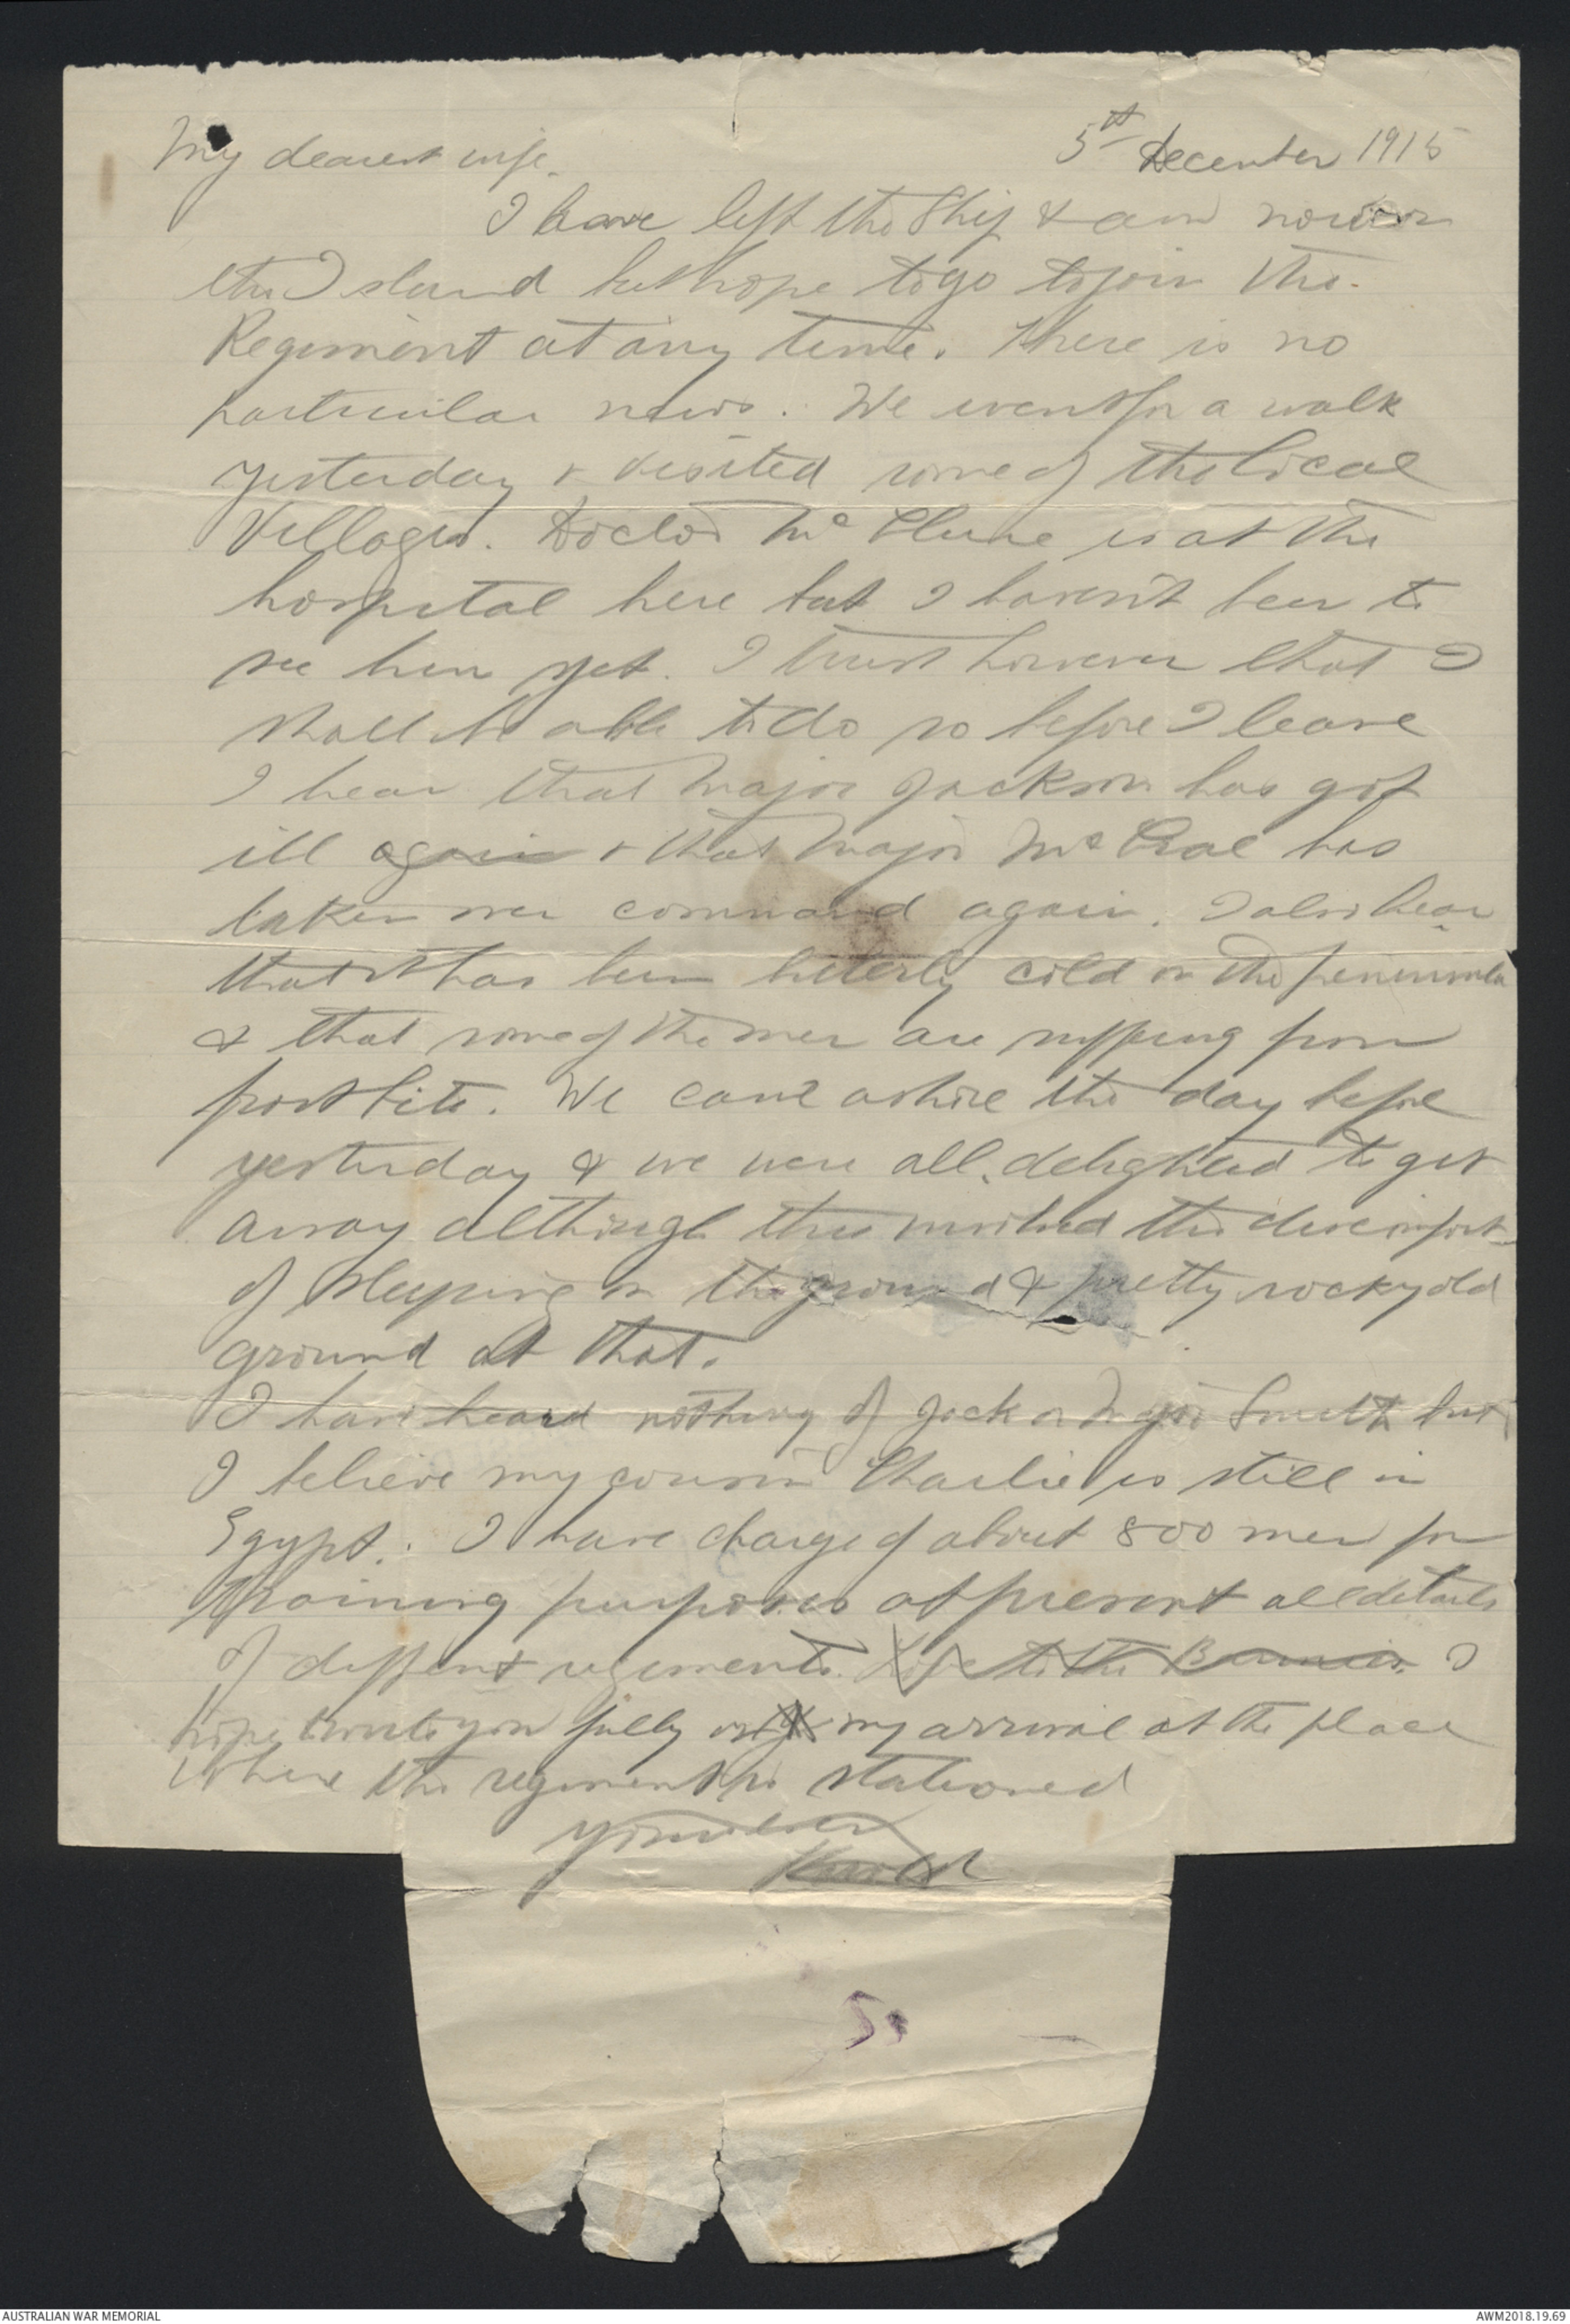 My dearest wife.
5th December 1915
I have left the Ship & am now on
the Island but hope to go to join the
Regiment at any time. There is no
particular news. We went for a walk
yesterday & visited some of the local
Villages. Doctor Mc Clure is at the
hospital here but I haven't been to
see him yet. I trust however that I
shall be able to do so before I leave
I hear that Major Jackson has got
ill again & that Major McCrae has
taken over command again. I also hear
that it has been bitterly cold on the peninsula
& that some of the men are suffering from
frost bite. We came ashore the day before
yesterday & we were all delighted to get
away although this involved the discomfort
of sleeping on the ground & pretty rocky old
ground at that.
I have heard nothing of Jack or Major Smith but
I believe my cousin Charlie is still in
Egypt. I have charge of about 800 men for
training purposes at present all details
of different regiments. to the I
hope to write you fully on my arrival at the place
where the regiment is stationed
Yours ever
5s
AUSTRALIAN WAR MEMORIAL
AWM2018.19.69